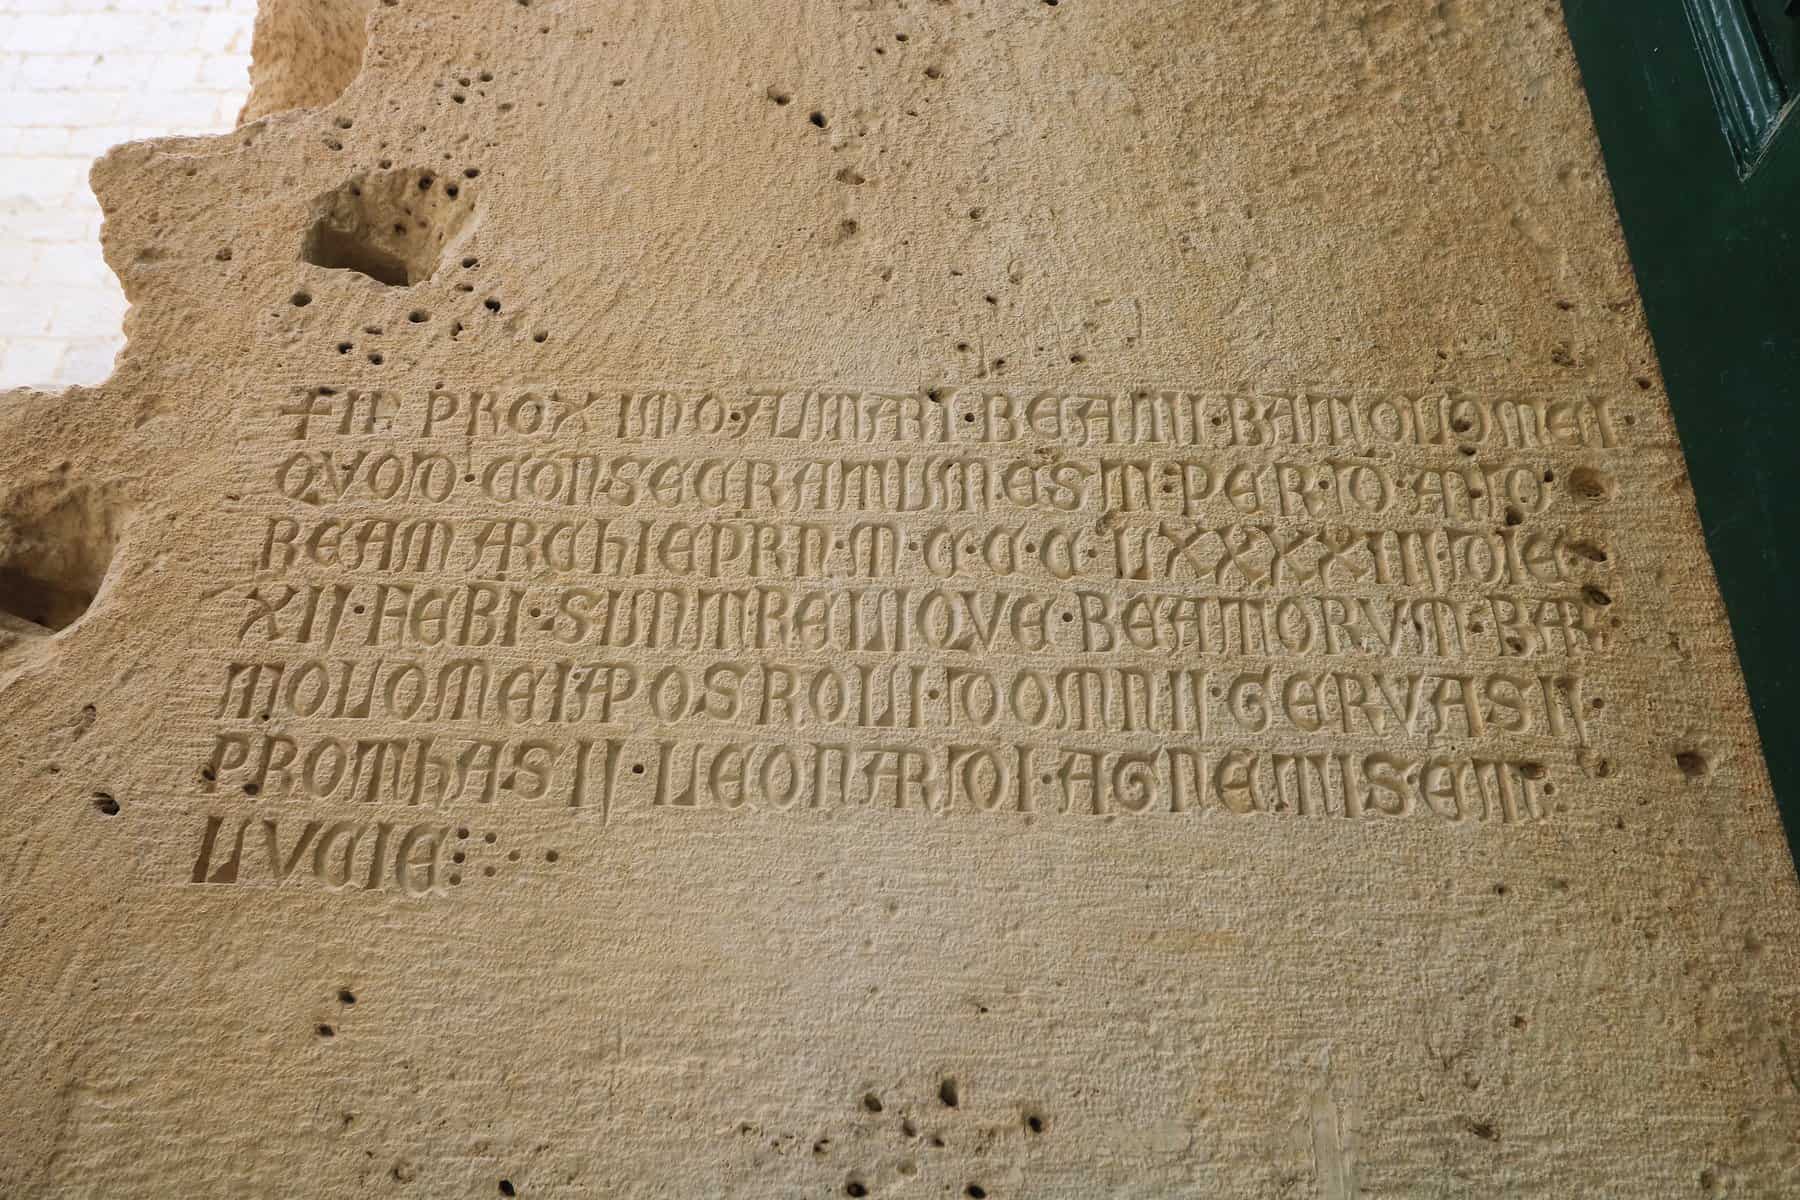 ✝ IN PROXIMO·ALTARI·BEATI·BARTOLOMEI·
QVOD·CONSECRATUM·EST·PER·D·ANTO
REAM ARCHIEPRN·M·C·C·C·LXXXXIII·DIE
XII·FEBI·SUNT RELIIQVE·BEATORVM·BAR
TOLOMEI APOSTOLI·DOMNII·GERVASII·
PROTHASII·LEONARDI·AGNETIS·ET·
LUVCIE